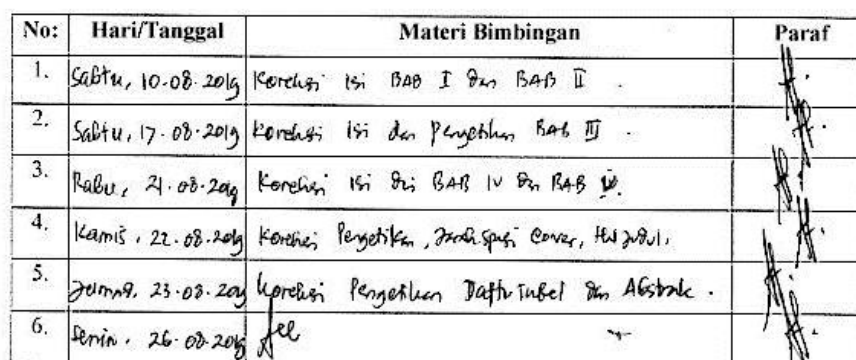 No: Hari/Tanggal Materi Bimbingan Paraf
1. Sabtu, 10.08.2019 Koreksi isi BAB I dan BAB II.
2. Sabtu, 17.08.2019 Koreksi isi dan Pengetikan BAB III.
3. Rabu, 21.08.2019 Koreksi isi dri BAB IV dan BAB
4. Kamis, 22.08.2019 Koreksi Pengetikan, cover, Hal judul,
5. Jumat, 23.08.2019 Koreksi Pengetikan Daftr Tabel dan Abstrak.
6. Senin, 26.08.2019 Acc